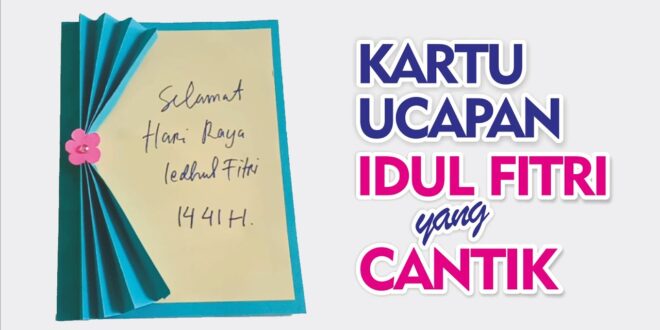 Selamat
Hari Raya
Iedhul Fitri
1441 H.
KARTU
UCAPAN
IDUL FITRI
yang
CANTIK